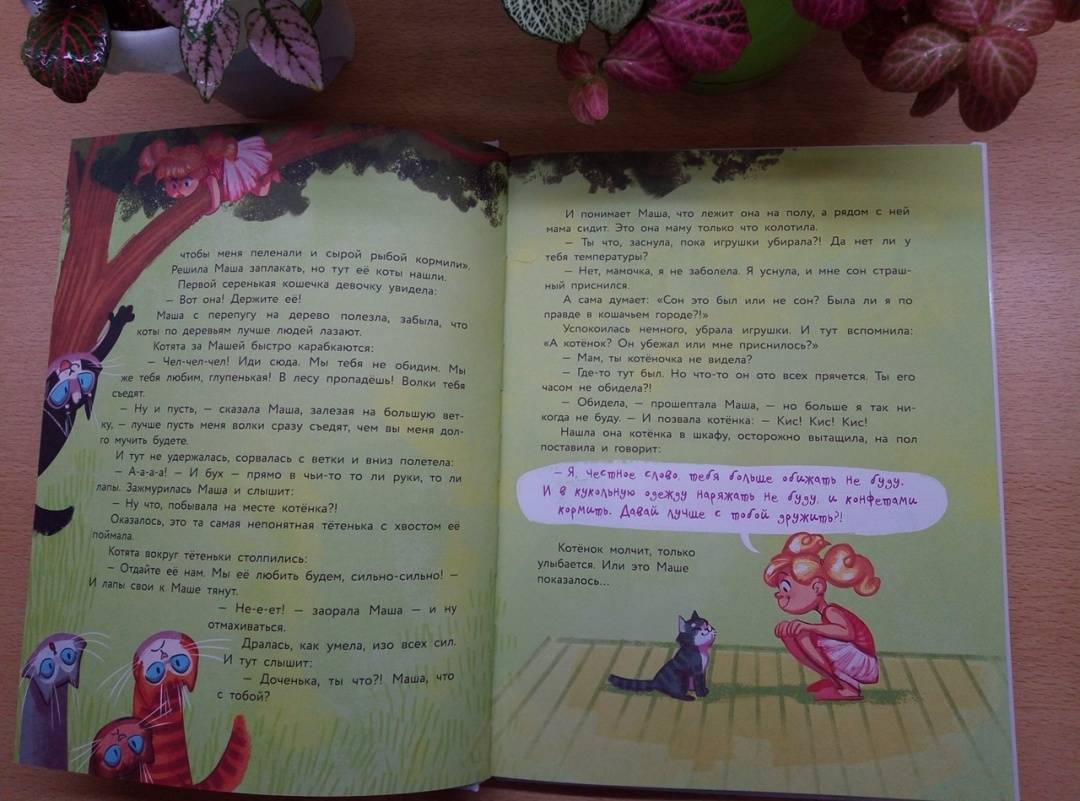 чтобы меня пеленали и сырой рыбой кормили».
Решила Маша заплакать, но тут её коты нашли.
Первой серенькая кошечка девочку увидела:
– Вот она! Держите её!
Маша с перепугу на дерево полезла, забыла, что
коты по деревьям лучше людей лазают.
Котята за Машей быстро карабкаются:
– Чел-чел-чел! Иди сюда. Мы тебя не обидим. Мы
же тебя любим, глупенькая! В лесу пропадёшь! Волки тебя
съедят.
– Ну и пусть, – сказала Маша, залезая на большую вет-
ку, – лучше пусть меня волки сразу съедят, чем вы меня дол-
го мучить будете.
И тут не удержалась, сорвалась с ветки и вниз полетела:
– А-а-а-а! – И бух – прямо в чьи-то то ли руки, то ли
лапы. Зажмурилась Маша и слышит:
– Ну что, побывала на месте котёнка?!
Оказалось, это та самая непонятная тётенька с хвостом её
поймала.
Котята вокруг тётеньки столпились:
– Отдайте её нам. Мы её любить будем, сильно-сильно! –
И лапы свои к Маше тянут.
– Не-е-ет! – заорала Маша – и ну
отмахиваться.
Дралась, как умела, изо всех сил.
И тут слышит:
– Доченька, ты что?! Маша, что
с тобой?
И понимает Маша, что лежит она на полу, а рядом с ней
мама сидит. Это она маму только что колотила.
– Ты что, заснула, пока игрушки убирала?! Да нет ли у
тебя температуры?
– Нет, мамочка, я не заболела. Я уснула, и мне сон страш-
ный приснился.
А сама думает: «Сон это был или не сон? Была ли я по
правде в кошачьем городе?!»
Успокоилась немного, убрала игрушки. И тут вспомнила:
«А котёнок? Он убежал или мне приснилось?»
– Мам, ты котёночка не видела?
– Где-то тут был. Но что-то он ото всех прячется. Ты его
часом не обидела?!
– Обидела, – прошептала Маша, – но больше я так ни-
когда не буду. – И позвала котёнка: – Кис! Кис! Кис!
Нашла она котёнка в шкафу, осторожно вытащила, на пол
поставила и говорит:
– Я, честное слово, тебя больше обижать не буду.
И в кукольную одежду наряжать не буду, и конфетами
кормить. Давай лучше с тобой дружить?!
Котёнок молчит, только
улыбается. Или это Маше
показалось...